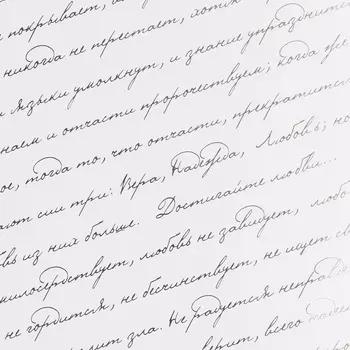 покрывает,
никогда не перестает, хотя
и языки умолкнут, и знание упразднит
знаем и отчасти пророчествуем; когда же
ое, тогда то, что отчасти, прекратит
ают сии три: Вера, Надежда, Любовь; но
вь из них больше. Достигайте любви...
милосердствует, любовь не завидует, любо
не гордится, не бесчинствует, не ищет св
лит зла. Не радуется неправд
верит, всего